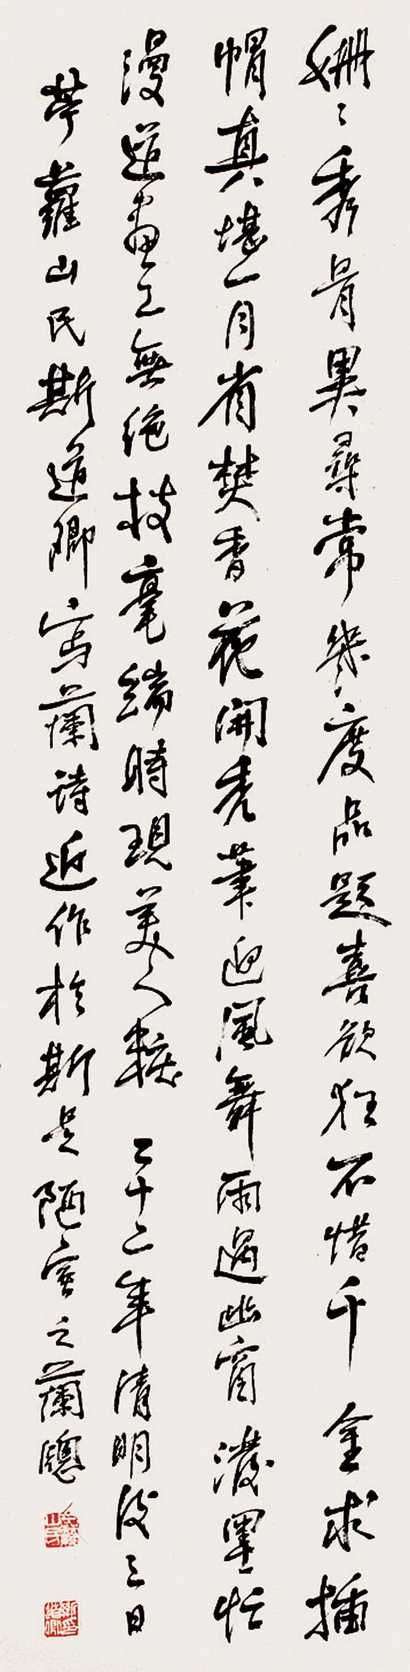 姗〻秀骨異尋常幾度品題喜欲狂不惜千金求插
帽真堪一月省焚香花開秃筆迎風舞雨過幽窗潑墨忙
漫道畫工無絶技毫端時現美人糚 二十二年清明後三日
苧蘿山民斯道卿寫蘭詩近作於斯是陋室之蘭牕